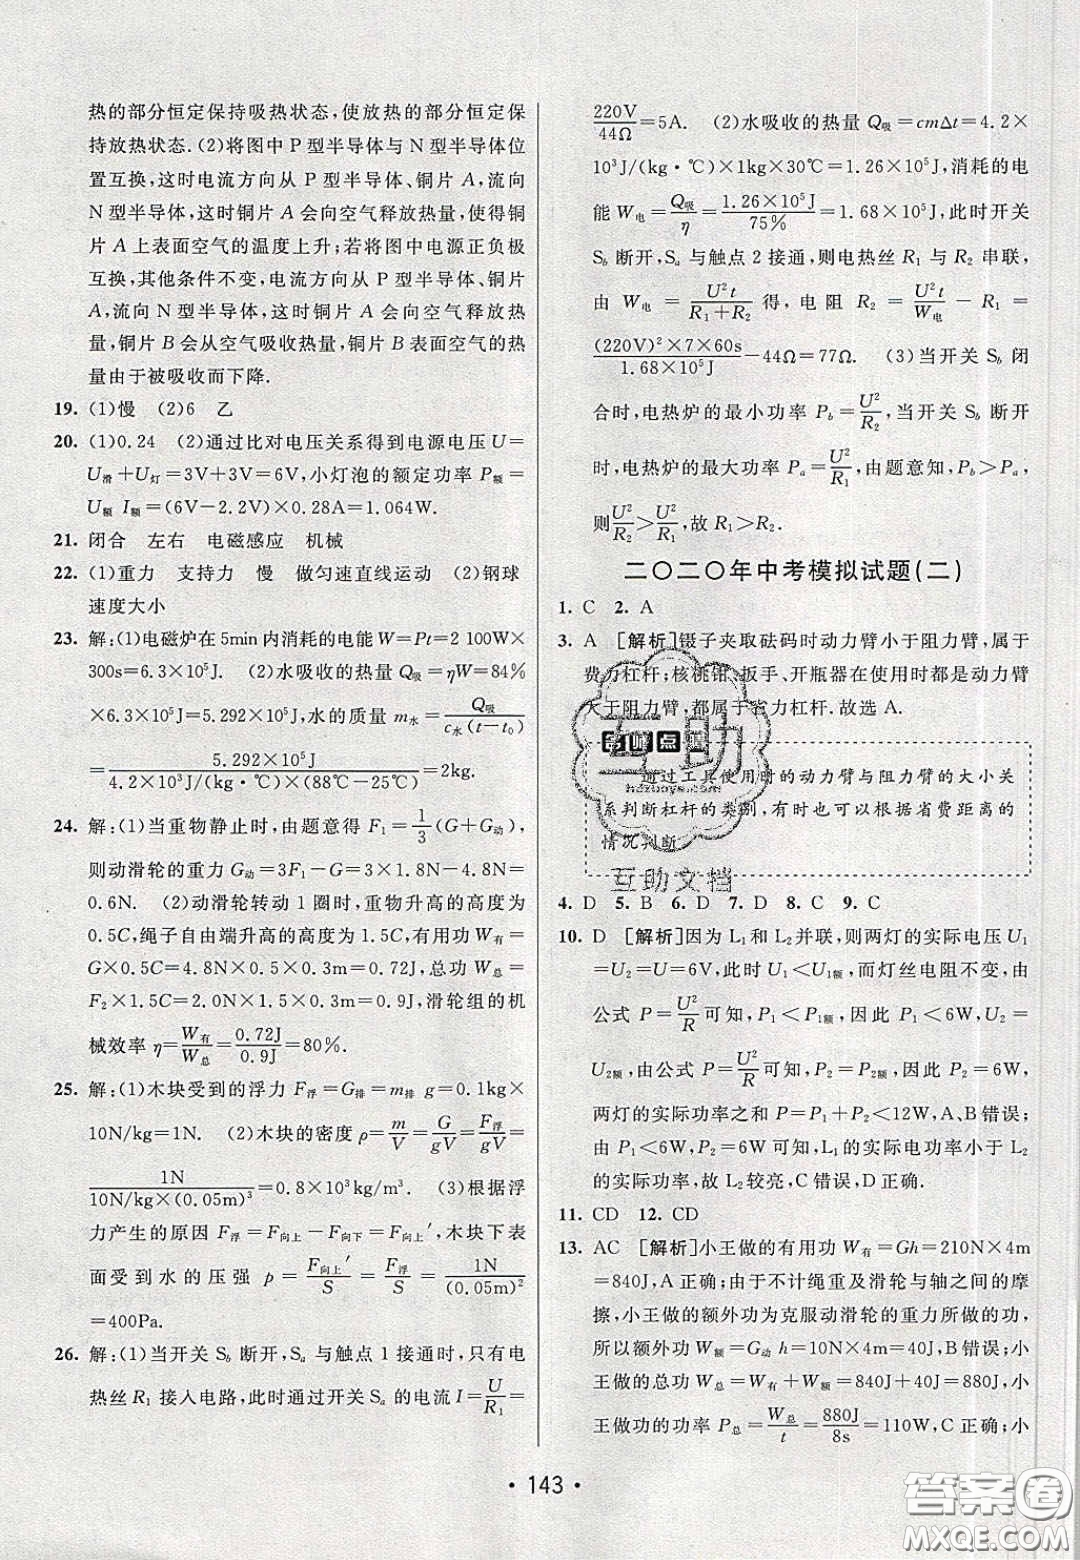 热的部分恒定保持吸热状态,使放热的部分恒定保
持放热状态.(2)将图中 P 型半导体与 N 型半导体位
置互换,这时电流方向从 P 型半导体、铜片 A,流向
N 型半导体,这时铜片 A 会向空气释放热量,使得铜
片 A 上表面空气的温度上升;若将图中电源正负极
互换,其他条件不变,电流方向从 P 型半导体、铜片
A,流向 N 型半导体,这时铜片 A 会向空气释放热
量,铜片 B 会从空气吸收热量,铜片 B 表面空气的热
量由于被吸收而下降.
19. (1)慢 (2)6 乙
20. (1)0.24 (2)通过比对电压关系得到电源电压 U=
U滑+U灯=3V+3V=6V,小灯泡的额定功率 P额=
U额 I额=(6V-2.2V)×0.28A=1.064W.
21. 闭合 左右 电磁感应 机械
22. (1)重力 支持力 慢 做匀速直线运动 (2)钢球
速度大小
23. 解:(1)电磁炉在 5min 内消耗的电能 W=Pt=2 100W×
300s=6.3×10⁵J (2)水吸收的热量 Q吸=ηW=84%
×6.3×10⁵J=5.292×10⁵J,水的质量 m水=Q吸/c水(t-t₀)
=5.292×10⁵J/4.2×10³J/(kg·℃)×(88℃-25℃)=2kg.
24. 解:(1)当重物静止时,由题意得 F₁=1/3(G+G动),
则动滑轮的重力 G动=3F₁-G=3×1.8N-4.8N=
0.6N. (2)动滑轮转动 1 圈时,重物升高的高度为
0.5C,绳子自由端升高的高度为 1.5C,有用功 W有=
G×0.5C=4.8N×0.5×0.3m=0.72J,总功 W总=
F₂×1.5C=2.0N×1.5×0.3m=0.9J,滑轮组的机
械效率 η=W有/W总=0.72J/0.9J=80%.
25. 解:(1)木块受到的浮力 F浮=G排=m排 g=0.1kg×
10N/kg=1N. (2)木块的密度 ρ=m/V=G/gV=F浮/gV=
1N/10N/kg×(0.05m)³=0.8×10³kg/m³. (3)根据浮
力产生的原因 F浮=F向上-F向下=F向上′,木块下表
面受到水的压强 p=F向上′/S=F浮/S=1N/(0.05m)²
=400Pa.
26. 解:(1)当开关 S_b 断开,S_a 与触点 1 接通时,只有电
热丝 R₁ 接入电路,此时通过开关 S_a 的电流 I=U/R₁=
220V/44Ω=5A. (2)水吸收的热量 Q吸=cmΔt=4.2×
10³J/(kg·℃)×1kg×30℃=1.26×10⁵J,消耗的电
能 W电=Q吸/η=1.26×10⁵J/75%=1.68×10⁵J,此时开关
S_b 断开,S_a 与触点 2 接通,则电热丝 R₁ 与 R₂ 串联,
由 W电=U²t/R₁+R₂ 得,电阻 R₂=U²t/W电-R₁=
(220V)²×7×60s/1.68×10⁵J-44Ω=77Ω. (3)当开关 S_b 闭
合时,电热炉的最小功率 P_b=U²/R₂,当开关 S_b 断开
时,电热炉的最大功率 P_a=U²/R₁,由题意知,P_b>P_a,
则U²/R₂>U²/R₁,故 R₁>R₂.
二〇二〇年中考模拟试题(二)
1. C 2. A
3. A [解析]镊子夹取砝码时动力臂小于阻力臂,属于
费力杠杆;核桃钳、扳手、开瓶器在使用时都是动力臂
大于阻力臂,都属于省力杠杆.故选 A.
点
通过工具使用时的动力臂与阻力臂的大小关
系判断杠杆的类别,有时也可以根据省费距离的
情况判断
4. D 5. B 6. D 7. D 8. C 9. C
10. D [解析]因为 L₁ 和 L₂ 并联,则两灯的实际电压 U₁
=U₂=U=6V,此时 U₁<U₁额,而灯丝电阻不变,由
公式 P=U²/R 可知,P₁<P₁额,所以 P₁<6W,U₂=
U₂额,由公式 P=U²/R 可知,P₂=P₂额,所以 P₂=6W,
两灯的实际功率之和 P=P₁+P₂<12W,A、B 错误;
由 P₁<6W,P₂=6W 可知,L₁ 的实际电功率小于 L₂
的实际功率,故 L₂ 较亮,C 错误,D 正确.
11. CD 12. CD
13. AC [解析]小王做的有用功 W有=Gh=210N×4m
=840J,A 正确;由于不计绳重及滑轮与轴之间的摩
擦,小王做的额外功为克服动滑轮的重力所做的功,
所以额外功 W额=G动 h=10N×4m=40J,B 错误;小
王做的总功 W总=W有+W额=840J+40J=880J,小
王做功的功率 P总=W总/t=880J/8s=110W,C 正确;小
· 143 ·
互助
hzczuoye.com
互助文档
答案圈
MXQE.COM